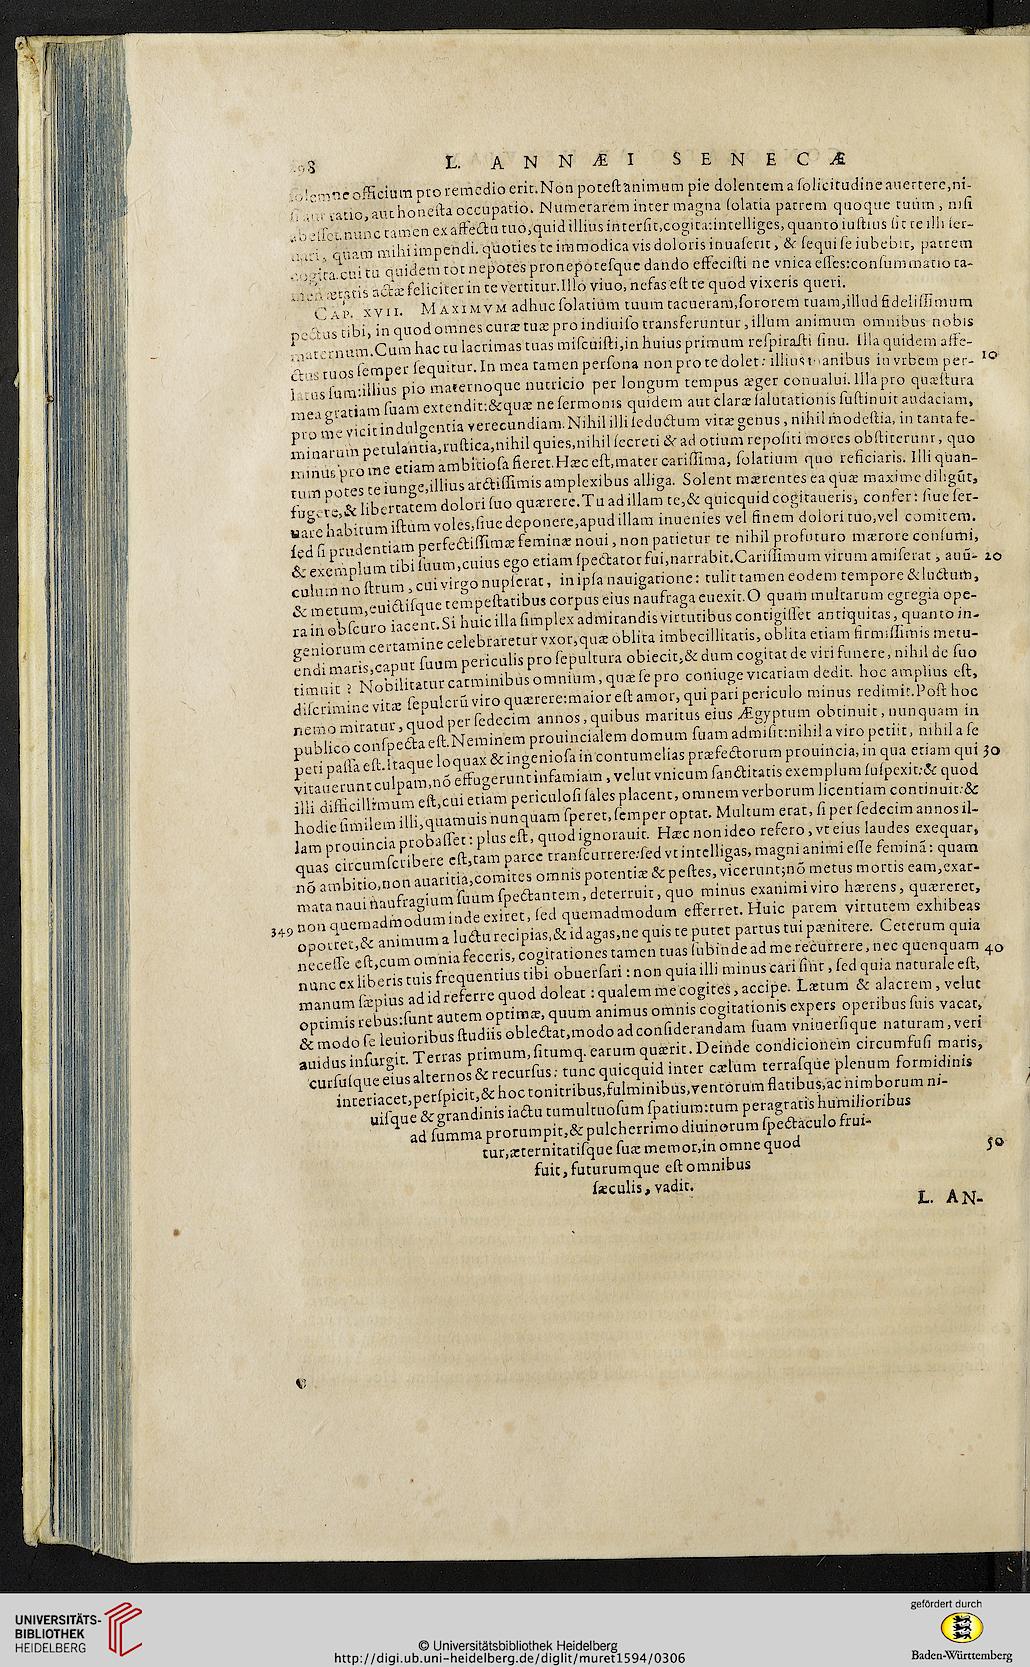 98 L. ANNÆI SENECÆ
solemne officium pro remedio erit. Non potest animum pie dolentem a solicitudine auertere, ni-
si aut ratio, aut honesta occupatio. Numerarem inter magna solatia patrem quoque tuum, nisi
abesset. nunc tamen ex affectu tuo, quid illius intersit, cogita: intelliges, quanto iustius sit te illi ser-
uari, quam mihi impendi. quoties te immodica vis doloris inuaserit, & sequi se iubebit, patrem
cogita. cui tu quidem tot nepotes pronepotesque dando effecisti ne vnica esses: consummatio ta-
men ætatis actæ feliciter in te vertitur. Illo viuo, nefas est te quod vixeris queri.
CAP. XVII. MAXIMVM adhuc solatium tuum tacueram, sororem tuam, illud fidelissimum
pectus tibi, in quod omnes curæ tuæ pro indiuiso transferuntur, illum animum omnibus nobis
maternum. Cum hac tu lacrimas tuas miscuisti, in huius primum respirasti sinu. Illa quidem affe-
ctus tuos semper sequitur. In mea tamen persona non pro te dolet: illius manibus in vrbem per- 10
latus sum: illius pio maternoque nutricio per longum tempus æger conualui. Illa pro quæstura
mea gratiam suam extendit: & quæ ne sermonis quidem aut claræ salutationis sustinuit audaciam,
pro me vicit indulgentia verecundiam. Nihil illi seductum vitæ genus, nihil modestia, in tanta fe-
minarum petulantia, rustica, nihil quies, nihil secreti & ad otium repositi mores obstiterunt, quo
minus pro me etiam ambitiosa fieret. Hæc est, mater carissima, solatium quo reficiaris. Illi quan-
tum potes te iunge, illius arctissimis amplexibus alliga. Solent mærentes ea quæ maxime diligūt,
fugere, & libertatem dolori suo quærere. Tu ad illam te, & quicquid cogitaueris, confer: siue ser-
uare habitum istum voles, siue deponere, apud illam inuenies vel finem dolori tuo, vel comitem.
sed si prudentiam perfectissimæ feminæ noui, non patietur te nihil profuturo mærore consumi,
& exemplum tibi suum, cuius ego etiam spectator fui, narrabit. Carissimum virum amiserat, auū- 20
culum nostrum, cui virgo nupserat, in ipsa nauigatione: tulit tamen eodem tempore & luctum,
& metum, euictisque tempestatibus corpus eius naufraga euexit. O quam multarum egregia ope-
ra in obscuro iacent. Si huic illa simplex admirandis virtutibus contigisset antiquitas, quanto in-
geniorum certamine celebraretur vxor, quæ oblita imbecillitatis, oblita etiam firmissimis metu-
endi maris, caput suum periculis pro sepultura obiecit, & dum cogitat de viri funere, nihil de suo
timuit? Nobilitatur carminibus omnium, quæ se pro coniuge vicariam dedit. hoc amplius est,
discrimine vitæ sepulcrū viro quærere: maior est amor, qui pari periculo minus redimit. Post hoc
nemo miratur, quod per sedecim annos, quibus maritus eius Ægyptum obtinuit, nunquam in
publico conspecta est. Neminem prouincialem domum suam admisit: nihil a viro petiit, nihil a se
peti passa est. Itaque loquax & ingeniosa in contumelias præfectorum prouincia, in qua etiam qui 30
vitauerunt culpam, nō effugerunt infamiam, velut vnicum sanctitatis exemplum suspexit: & quod
illi difficillimum est, cui etiam periculosi sales placent, omnem verborum licentiam continuit: &
hodie similem illi, quamuis nunquam speret, semper optat. Multum erat, si per sedecim annos il-
lam prouincia probasset: plus est, quod ignorauit. Hæc non ideo refero, vt eius laudes exequar,
quas circumscribere est, tam parce transcurrere: sed vt intelligas, magni animi esse feminā: quam
nō ambitio, non auaritia, comites omnis potentiæ & pestes, vicerunt; nō metus mortis eam, exar-
mata naui naufragium suum spectantem, deterruit, quo minus exanimi viro hærens, quæreret,
349 non quemadmodum inde exiret, sed quemadmodum efferret. Huic parem virtutem exhibeas
oportet, & animum a luctu recipias, & id agas, ne quis te putet partus tui pænitere. Ceterum quia
necesse est, cum omnia feceris, cogitationes tamen tuas subinde ad me recurrere, nec quenquam 40
nunc ex liberis tuis frequentius tibi obuersari: non quia illi minus cari sint, sed quia naturale est,
manum sæpius ad id referre quod doleat: qualem me cogites, accipe. Lætum & alacrem, velut
optimis rebus: sunt autem optimæ, quum animus omnis cogitationis expers operibus suis vacat,
& modo se leuioribus studiis oblectat, modo ad considerandam suam vniuersique naturam, veri
auidus insurgit. Terras primum, situmq. earum quærit. Deinde condicionem circumfusi maris,
cursusque eius alternos & recursus: tunc quicquid inter cælum terrasque plenum formidinis
interiacet, perspicit, & hoc tonitribus, fulminibus, ventorum flatibus, ac nimborum ni-
uisque & grandinis iactu tumultuosum spatium: tum peragratis humilioribus
ad summa prorumpit, & pulcherrimo diuinorum spectaculo frui-
tur, æternitatisque suæ memor, in omne quod 50
fuit, futurumque est omnibus
sæculis, vadit.
L. AN-
UNIVERSITÄTS-
BIBLIOTHEK
HEIDELBERG
© Universitätsbibliothek Heidelberg
http://digi.ub.uni-heidelberg.de/diglit/muret1594/0306
gefördert durch
Baden-Württemberg